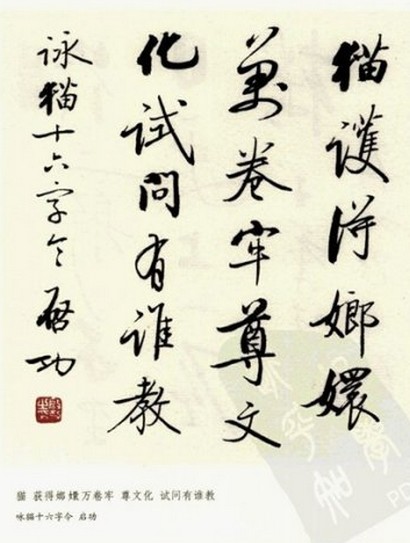 猫護得嫏嬛
萬卷牢尊文
化試問有誰教
詠猫十六字令 啓功
猫 获得嫏嬛万卷牢 尊文化 试问有谁教
咏猫十六字令 启功